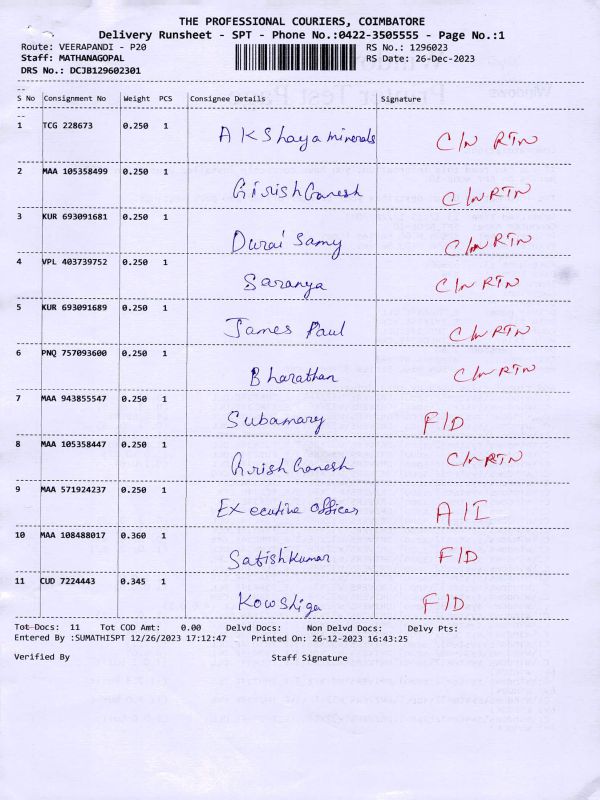 THE PROFESSIONAL COURIERS, COIMBATORE
Delivery Runsheet - SPT - Phone No.:0422-3505555 - Page No.:1
Route: VEERAPANDI - P20 RS No.: 1296023
Staff: MATHANAGOPAL RS Date: 26-Dec-2023
DRS No.: DCJB129602301
S No Consignment No Weight PCS Consignee Details Signature
1 TCG 228673 0.250 1 AKShaya minerals C/N RTN
2 MAA 105358499 0.250 1 Girish Ganesh C/N RTN
3 KUR 693091681 0.250 1 Durai Samy C/N RTN
4 VPL 403739752 0.250 1 Saranya C/N RTN
5 KUR 693091689 0.250 1 James Paul C/N RTN
6 PNQ 757093600 0.250 1 Bharathan C/N RTN
7 MAA 943855547 0.250 1 Subamary F/D
8 MAA 105358447 0.250 1 Girish Ganesh C/N RTN
9 MAA 571924237 0.250 1 Executive Officer A/I
10 MAA 108488017 0.360 1 Satishkumar F/D
11 CUD 7224443 0.345 1 Kowshiga F/D
Tot Docs: 11 Tot COD Amt: 0.00 Delvd Docs: Non Delvd Docs: Delvy Pts:
Entered By :SUMATHISPT 12/26/2023 17:12:47 Printed On: 26-12-2023 16:43:25
Verified By Staff Signature